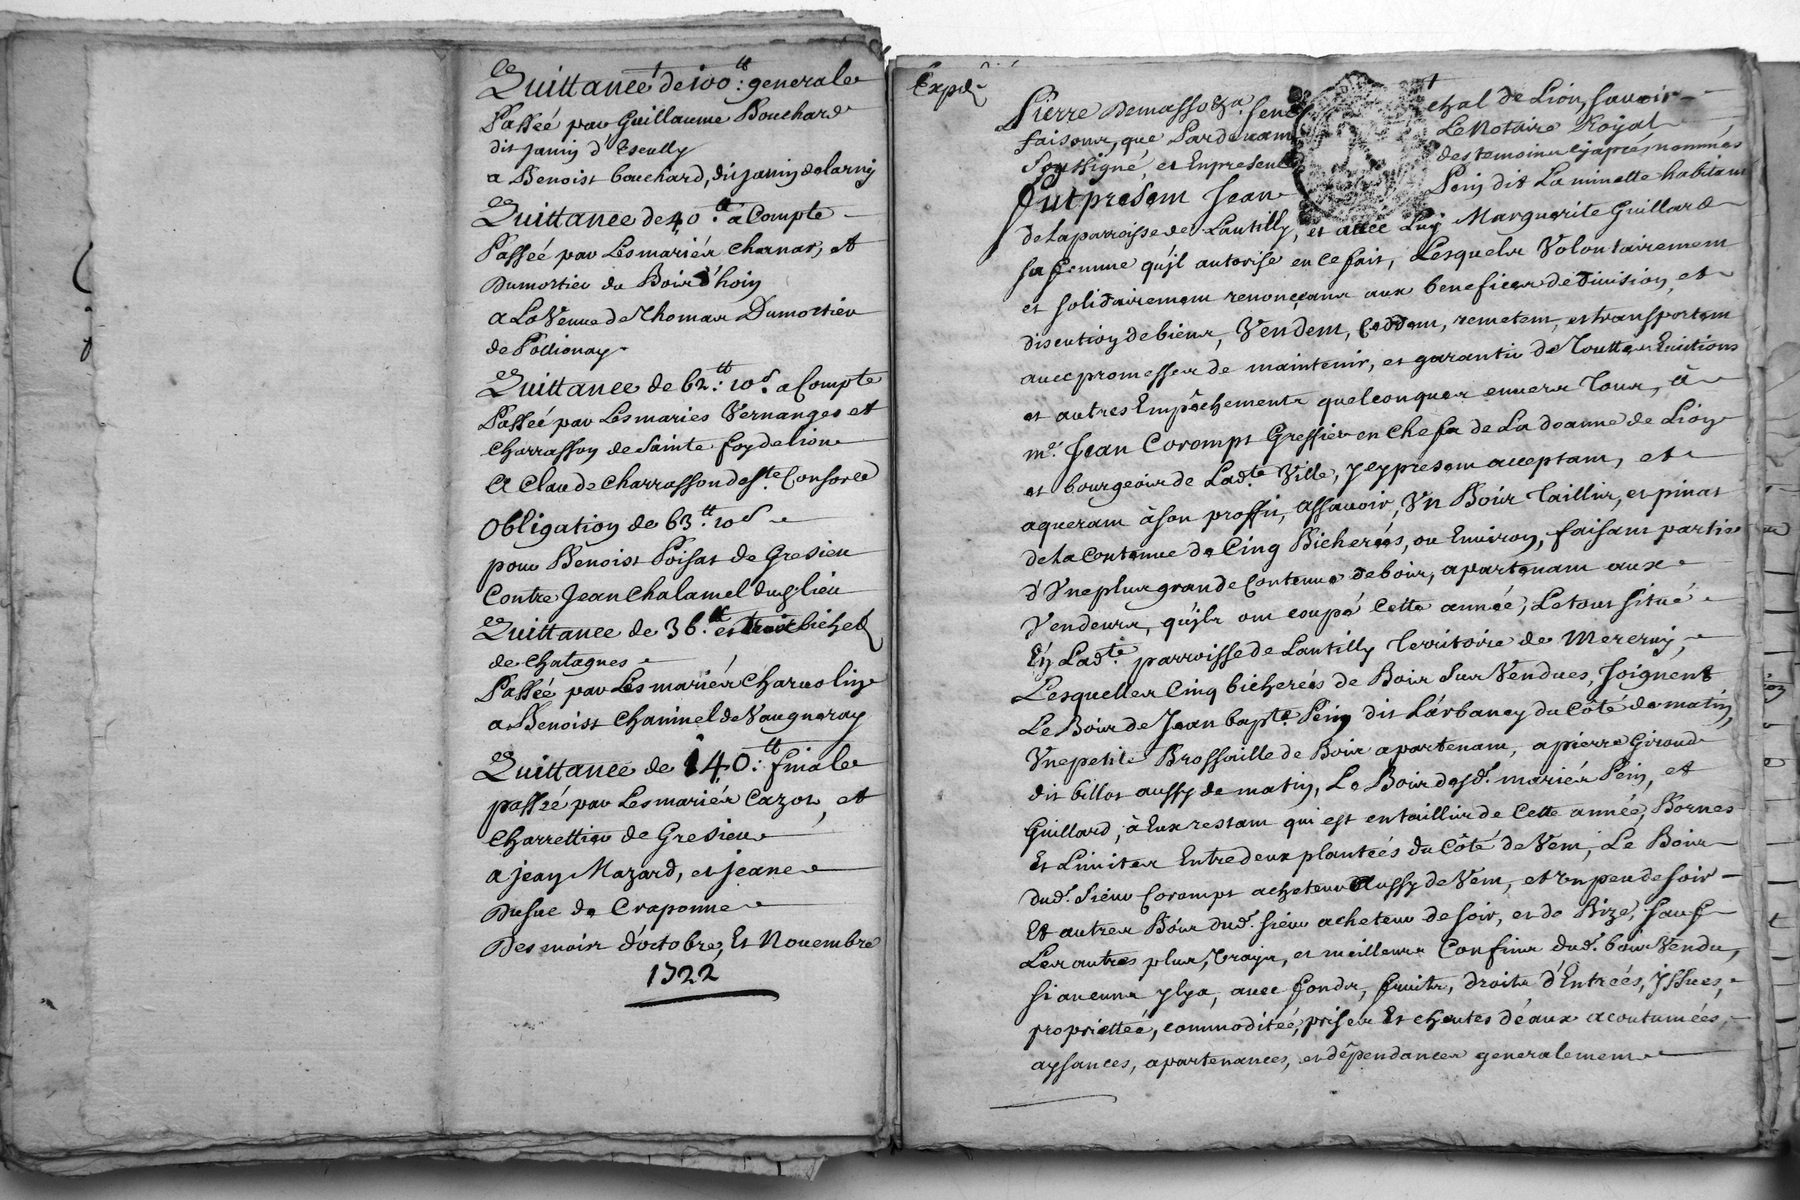 Quittance de 100.tt generale
Passeé par Guillaume Bouchard
dit Jamin d'Escully
a Benoist bouchard, dit Jamin delarny
Quittance de 40.tt a Compte
Passeé par Les mariér Charnas, et
Dumortier du Bois d'hoin
a La Veuue de Thomas Dumortier
de Pollionay
Quittance de 62.tt 10.s a Compte
Passeé par Les mariés Vernanges et
Charrasson de Sainte foy de lion
a Claude Charrasson de S.te Consorce
Obligation de 63.tt 10.s
pour Benoist Poisat de Gresieu
Contre Jean Chalamel dud. lieu
Quittance de 36.tt et trois bichet
de chatagnes
Passeé par Les mariér Charuolin
a Benoist Chaninel de Vaugneray
Quittance de 140.tt finale
passeé par Les mariér Cazot, et
Charrettier de Gresieu
a jean Mazard, et jeane
Dusuc de Craponne
Des mois d'octobre, Et Nouembre
1722
Expd.
Pierre Demasso sene chal de Lion, sauoir
faisons, que Pardeuant Le Notaire Royal
soussigné, et En presence des temoins cy apres nommés
fut present Jean Pein dit La minette habitant
de la parroisse de Lantilly, et auec Luy Marguerite Guillard
sa femme qu'jl autorise en ce fait, Lesquels Volontairement
et solidairement renonçeant aux benefices de diuision, et
discution de biens, Vendent, Cedent, remetent, et transportent
auec promesses de maintenir, et garantir de Touttes Euictions
et autres Empêchements quelconques enuers Tous, à
m.e Jean Corompt Greffier en chef de La doanne de Lion
et bourgeois de Lad.te Ville, jcy present acceptant, et
aquerant à son proffit, assauoir, Vn Bois Taillis, et pinat
de la contenue de Cinq Bichereés, ou Enuiron, faisant partie
d'Vne plus grande Contenue de bois, apartenant aux
Vendeurs, qu'jls ont coupé cette anneé, Le tout situé
En Lad.te parroisse de Lantilly Territoire de Mereruy,
Lesquelles Cinq bichereés de Bois Sus Vendues, Joignent
Le Bois de Jean bapt.e Pein dit Larbancy du Côté de matin,
Vne petite Brossaille de Bois apartenant, a pierre Giroud
dit billot aussy de matin, Le Bois desd. mariér Pein, et
Guillard, à Eux restant qui est en taillis de Cette anneé, Bornes
Et Limites Entre deux planteés du Côté de Vent, Le Bois
dud. Sieur Corompt acheteur Aussy de Vent, et un peu de soir
Et autres Bois dud. sieur acheteur de soir, et de Bize, sauf
Les autres plus, Vrays, et meilleurs Confins dud. bois Vendu,
si aucuns jlya, auec fonds, fruits, droits d'Entreés, jssues,
proprietteé, commoditeé, prises Et cheutes d'éaux acoutumeés,
aysances, apartenances, et dépendances generalement